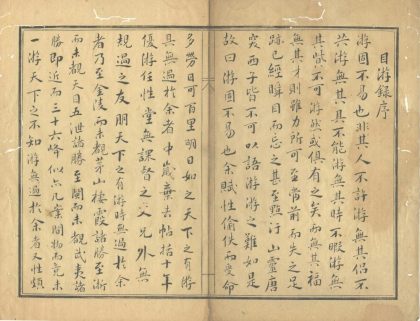 目游録序
游固不易也非其人不許游無其侶不
共游無其具不能游無其時不暇游無
其皆不可游然或俱有之矣而無其福
無其才則雖力所可至當前而失之足
跡已經瞬目而忘之甚至點汙山靈唐
突西子皆不可以語游游之難如是
故曰游固不易也余賦性偷佚而受命
多勞日可百里明日如之天下之有游
具無過於余者中歲棄去帖括十年
優游任性堂無課督之父兄外無
規過之友朋天下之有游時無過於余
者乃至金陵而未觀茅山棲霞諸勝至浙
而未觀天目五泄諸勝至閩而未觀武夷諸
勝即近而三十六峰似六几案間物而竟未
一游天下之不知游無過於余者又性類